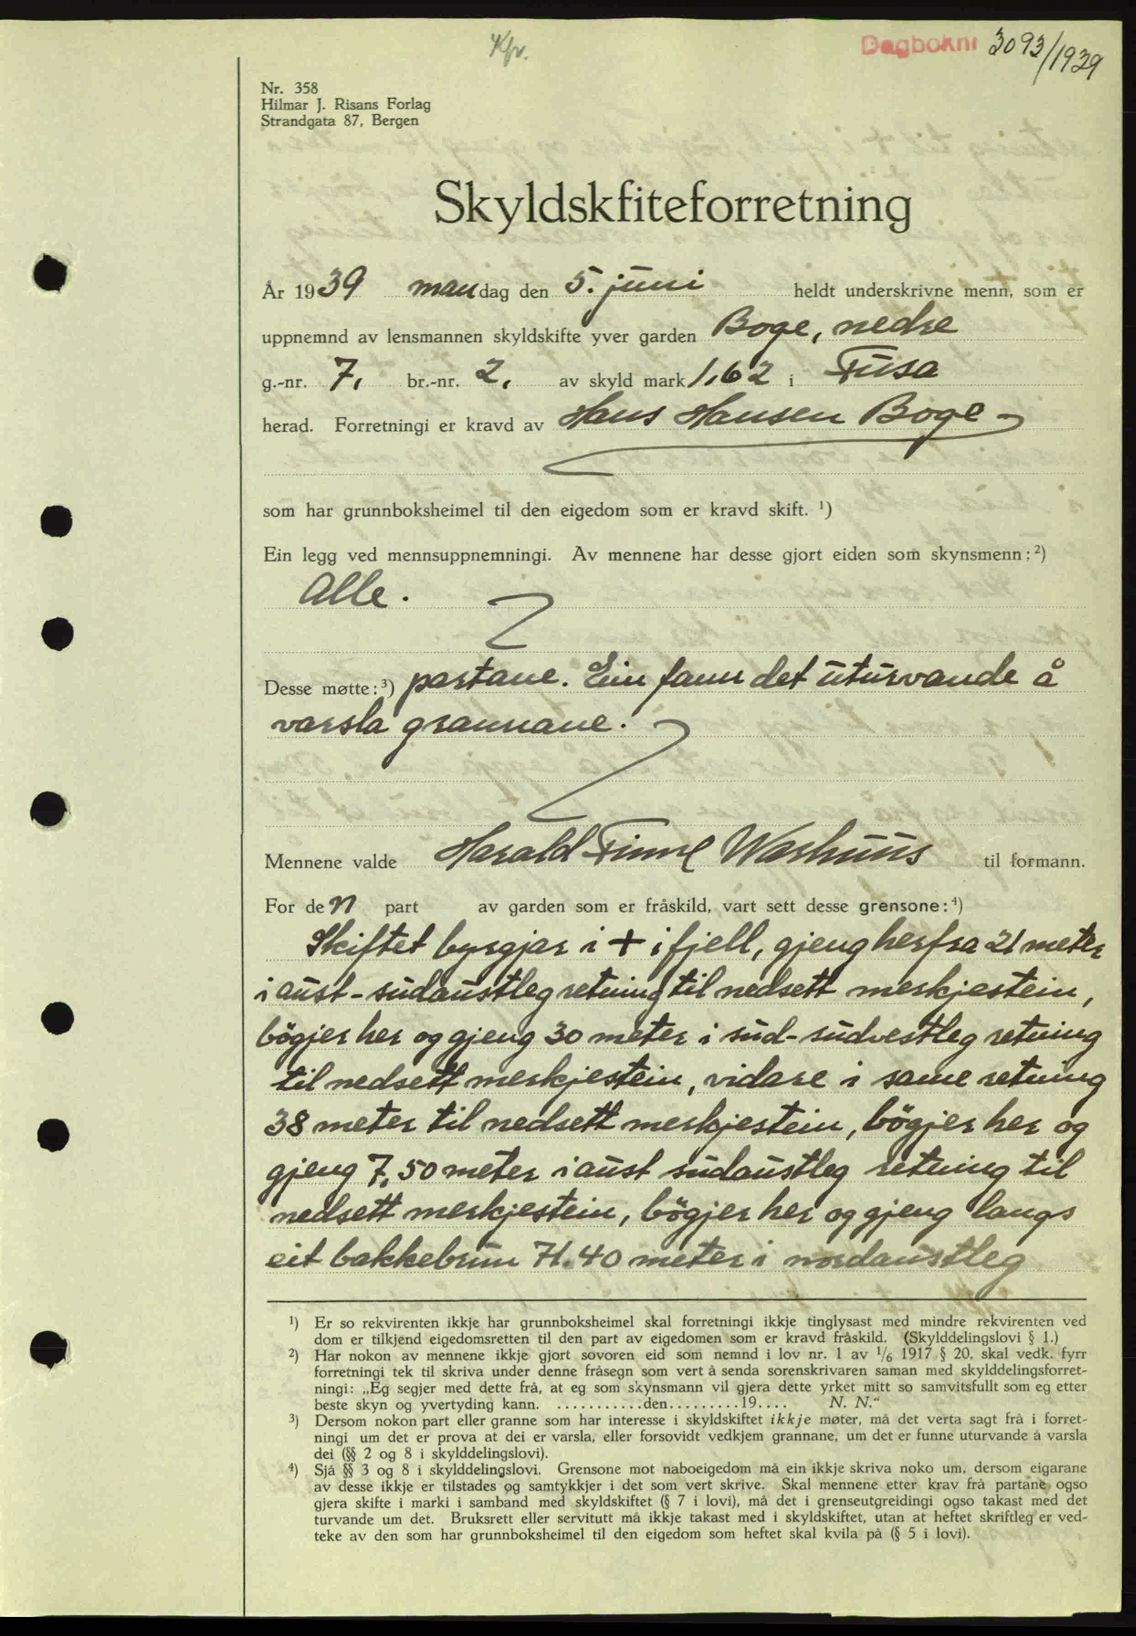 Kfr.
Dagboknr 3093/1939
Nr. 358
Hilmar J. Risans Forlag
Strandgata 87, Bergen
Skyldskfiteforretning
År 1939 mandag den 5. juni heldt underskrivne menn, som er
uppnemnd av lensmannen skyldskifte yver garden Boge, nedre
g.-nr. 7, br.-nr. 2, av skyld mark 1,62 i Fusa
herad. Forretningi er kravd av Hans Hansen Boge
som har grunnboksheimel til den eigedom som er kravd skift. ¹)
Ein legg ved mennsuppnemningi. Av mennene har desse gjort eiden som skynsmenn: ²)
Alle.
Desse møtte: ³) partane. Ein fann det uturvande å
varsla grannane.
Mennene valde Harald Finne Warhuus til formann.
For den part av garden som er fråskild, vart sett desse grensone: ⁴)
Skiftet byrgjar i + i fjell, gjeng herfra 21 meter
i aust-sudaustleg retning til nedsett merkjestein,
bögjer her og gjeng 30 meter i sud-sudvestleg retning
til nedsett merkjestein, vidare i same retning
38 meter til nedsett merkjestein, bögjer her og
gjeng 7,50 meter i aust sudaustleg retning til
nedsett merkjestein, bögjer her og gjeng langs
eit bakkebrun 71.40 meter i nordaustleg
¹) Er so rekvirenten ikkje har grunnboksheimel skal forretningi ikkje tinglysast med mindre rekvirenten ved
dom er tilkjend eigedomsretten til den part av eigedomen som er kravd fråskild. (Skylddelingslovi § 1.)
²) Har nokon av mennene ikkje gjort sovoren eid som nemnd i lov nr. 1 av 1/6 1917 § 20, skal vedk. fyrr
forretningi tek til skriva under denne fråsegn som vert å senda sorenskrivaren saman med skylddelingsforret-
ningi: „Eg segjer med dette frå, at eg som skynsmann vil gjera dette yrket mitt so samvitsfullt som eg etter
beste skyn og yvertyding kann. ...........den.........19.... N. N."
³) Dersom nokon part eller granne som har interesse i skyldskiftet ikkje møter, må det verta sagt frå i forret-
ningi um det er prova at dei er varsla, eller forsovidt vedkjem grannane, um det er funne uturvande å varsla
dei (§§ 2 og 8 i skylddelingslovi).
⁴) Sjå §§ 3 og 8 i skylddelingslovi. Grensone mot naboeigedom må ein ikkje skriva noko um, dersom eigarane
av desse ikkje er tilstades og samtykkjer i det som vert skrive. Skal mennene etter krav frå partane ogso
gjera skifte i marki i samband med skyldskiftet (§ 7 i lovi), må det i grenseutgreidingi ogso takast med det
turvande um det. Bruksrett eller servitutt må ikkje takast med i skyldskiftet, utan at heftet skriftleg er ved-
teke av den som har grunnboksheimel til den eigedom som heftet skal kvila på (§ 5 i lovi).